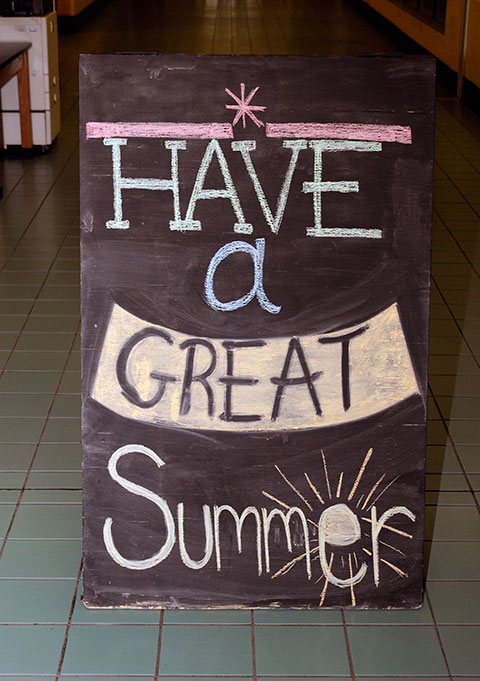 HAVE
a
GREAT
Summer